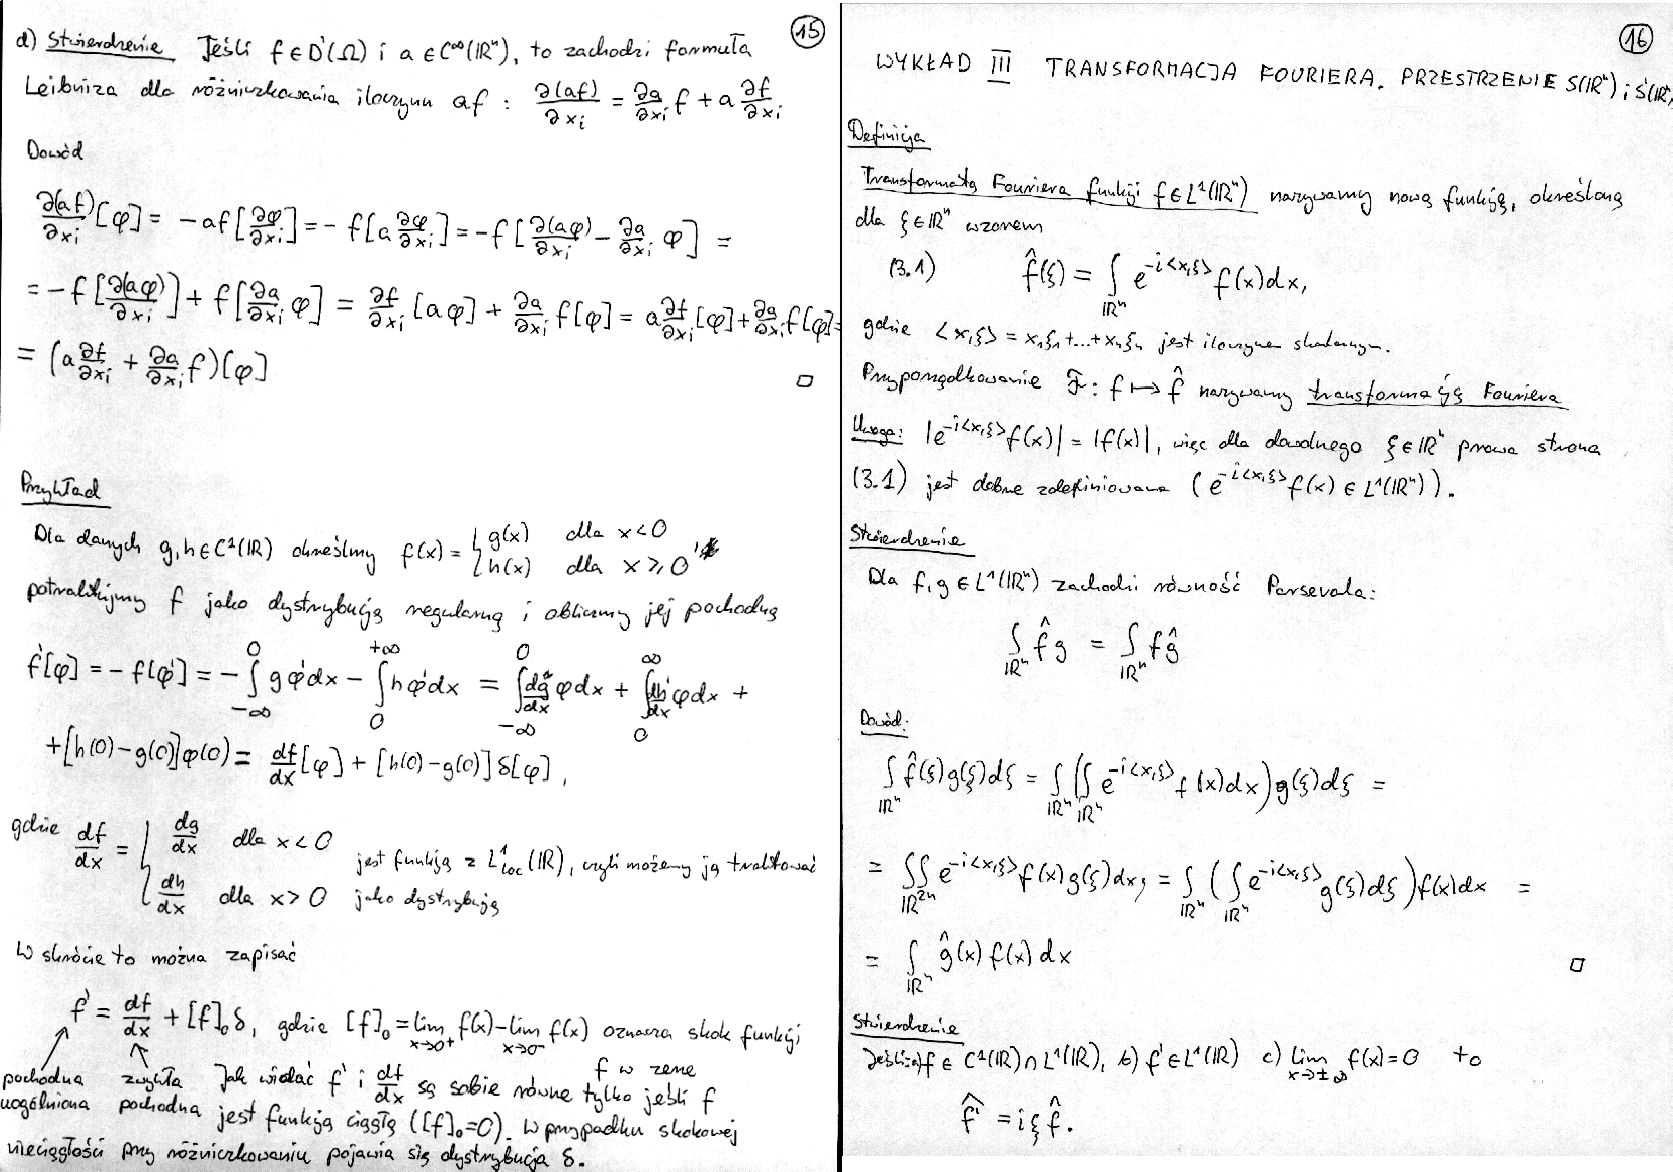 15
d) Stwierdzenie Jeśli f∈D'(Ω) i a∈C^∞(ℝⁿ), to zachodzi formuła
Leibniza dla różniczkowania iloczynu af : ∂(af)/∂x_i = ∂a/∂x_i f + a ∂f/∂x_i
Dowód
∂(af)/∂x_i [φ] = -af[∂φ/∂x_i] = -f[a ∂φ/∂x_i] = -f[∂(aφ)/∂x_i - ∂a/∂x_i φ] =
= -f[∂(aφ)/∂x_i] + f[∂a/∂x_i φ] = ∂f/∂x_i [aφ] + ∂a/∂x_i f[φ] = a ∂f/∂x_i [φ] + ∂a/∂x_i f[φ] =
= (a ∂f/∂x_i + ∂a/∂x_i f)[φ] □
Przykład
Dla danych g, h∈C¹(ℝ) określmy f(x) = { g(x) dla x<0
h(x) dla x≥0,
potraktujmy f jako dystrybucję regularną i obliczmy jej pochodną
f'[φ] = -f[φ'] = -∫_{-∞}^{0} gφ'dx - ∫_{0}^{+∞} hφ'dx = ∫_{-∞}^{0} dg/dx φdx + ∫_{0}^{∞} dh/dx φdx +
+[h(0)-g(0)]φ(0) = df/dx [φ] + [h(0)-g(0)]δ[φ],
gdzie df/dx = { dg/dx dla x<0
dh/dx dla x>0
jest funkcją z L¹_loc(ℝ), czyli możemy ją traktować
jako dystrybucję
W skrócie to można zapisać
f' = df/dx + [f]₀δ, gdzie [f]₀ = lim_{x→0⁺} f(x) - lim_{x→0⁻} f(x) oznacza skok funkcji
f w zerze
pochodna uogólniona
zwykła pochodna
Jak widać f' i df/dx są sobie równe tylko jeśli f
jest funkcją ciągłą ([f]₀=0). W przypadku skokowej
nieciągłości przy różniczkowaniu pojawia się dystrybucja δ.
16
WYKŁAD III TRANSFORMACJA FOURIERA. PRZESTRZENIE S(ℝⁿ) i S'(ℝⁿ)
Definicja
Transformatą Fouriera funkcji f∈L¹(ℝⁿ) nazywamy nową funkcję, określoną
dla ξ∈ℝⁿ wzorem
(3.1) f̂(ξ) = ∫_{ℝⁿ} e^{-i<x,ξ>} f(x)dx,
gdzie <x,ξ> = x₁ξ₁+...+xₙξₙ jest iloczynem skalarnym.
Przyporządkowanie ℱ: f ↦ f̂ nazywamy transformacją Fouriera
Uwaga: |e^{-i<x,ξ>} f(x)| = |f(x)|, więc dla dowolnego ξ∈ℝⁿ prawa strona
(3.1) jest dobrze zdefiniowana (e^{-i<x,ξ>} f(x) ∈ L¹(ℝⁿ)).
Stwierdzenie
Dla f, g ∈ L¹(ℝⁿ) zachodzi równość Parsevala:
∫_{ℝⁿ} f̂g = ∫_{ℝⁿ} fĝ
Dowód:
∫_{ℝⁿ} f̂(ξ)g(ξ)dξ = ∫_{ℝⁿ} (∫_{ℝⁿ} e^{-i<x,ξ>} f(x)dx) g(ξ)dξ =
= ∫∫_{ℝ²ⁿ} e^{-i<x,ξ>} f(x)g(ξ)dxξ = ∫_{ℝⁿ} (∫_{ℝⁿ} e^{-i<x,ξ>} g(ξ)dξ) f(x)dx =
= ∫_{ℝⁿ} ĝ(x) f(x) dx □
Stwierdzenie
Jeśli a) f ∈ C¹(ℝ)∩L¹(ℝ), b) f'∈L¹(ℝ) c) lim_{x→±∞} f(x)=0 to
f̂' = iξf̂.